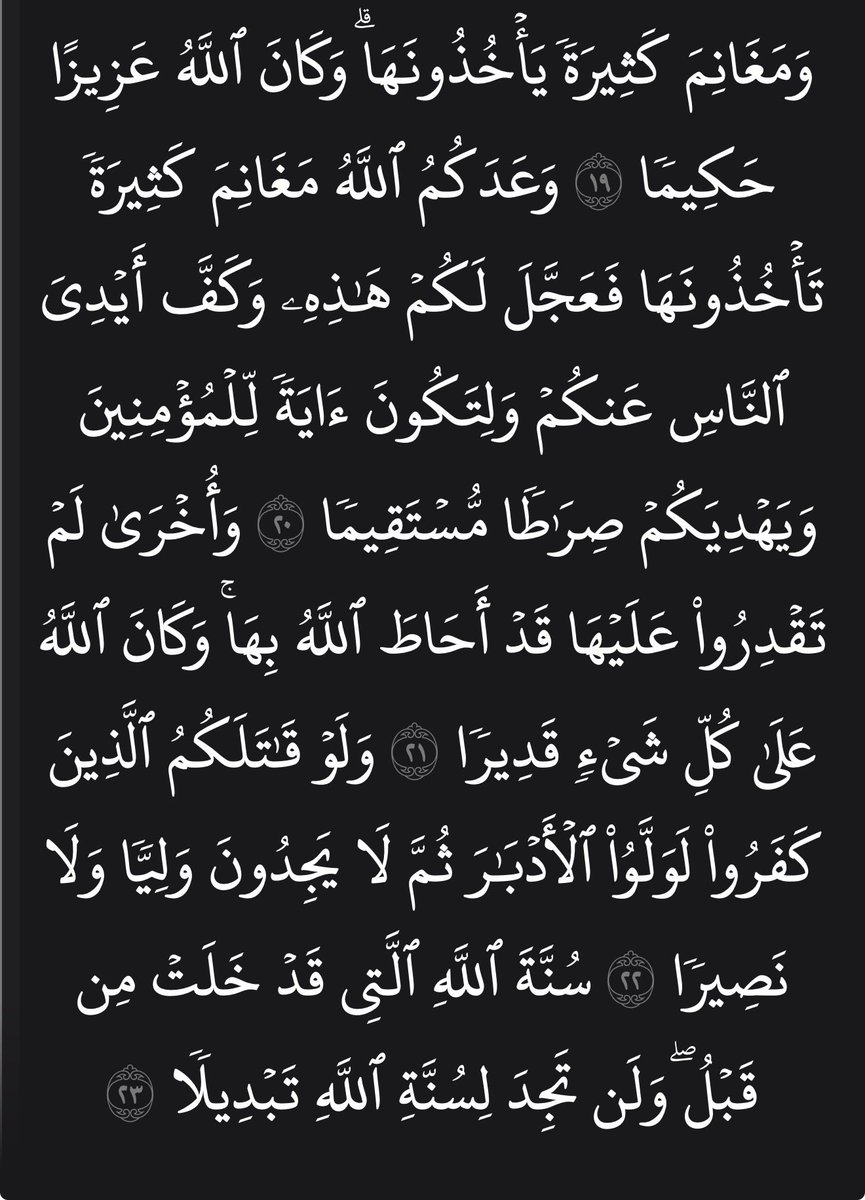 وَمَغَانِمَ كَثِيرَةٗ يَأۡخُذُونَهَاۗ وَكَانَ ٱللَّهُ عَزِيزًا
حَكِيمٗا ١٩ وَعَدَكُمُ ٱللَّهُ مَغَانِمَ كَثِيرَةٗ
تَأۡخُذُونَهَا فَعَجَّلَ لَكُمۡ هَٰذِهِۦ وَكَفَّ أَيۡدِيَ
ٱلنَّاسِ عَنكُمۡ وَلِتَكُونَ ءَايَةٗ لِّلۡمُؤۡمِنِينَ
وَيَهۡدِيَكُمۡ صِرَٰطٗا مُّسۡتَقِيمٗا ٢٠ وَأُخۡرَىٰ لَمۡ
تَقۡدِرُواْ عَلَيۡهَا قَدۡ أَحَاطَ ٱللَّهُ بِهَاۚ وَكَانَ ٱللَّهُ
عَلَىٰ كُلِّ شَيۡءٖ قَدِيرٗا ٢١ وَلَوۡ قَٰتَلَكُمُ ٱلَّذِينَ
كَفَرُواْ لَوَلَّوُاْ ٱلۡأَدۡبَٰرَ ثُمَّ لَا يَجِدُونَ وَلِيّٗا وَلَا
نَصِيرٗا ٢٢ سُنَّةَ ٱللَّهِ ٱلَّتِي قَدۡ خَلَتۡ مِن
قَبۡلُۖ وَلَن تَجِدَ لِسُنَّةِ ٱللَّهِ تَبۡدِيلٗا ٢٣